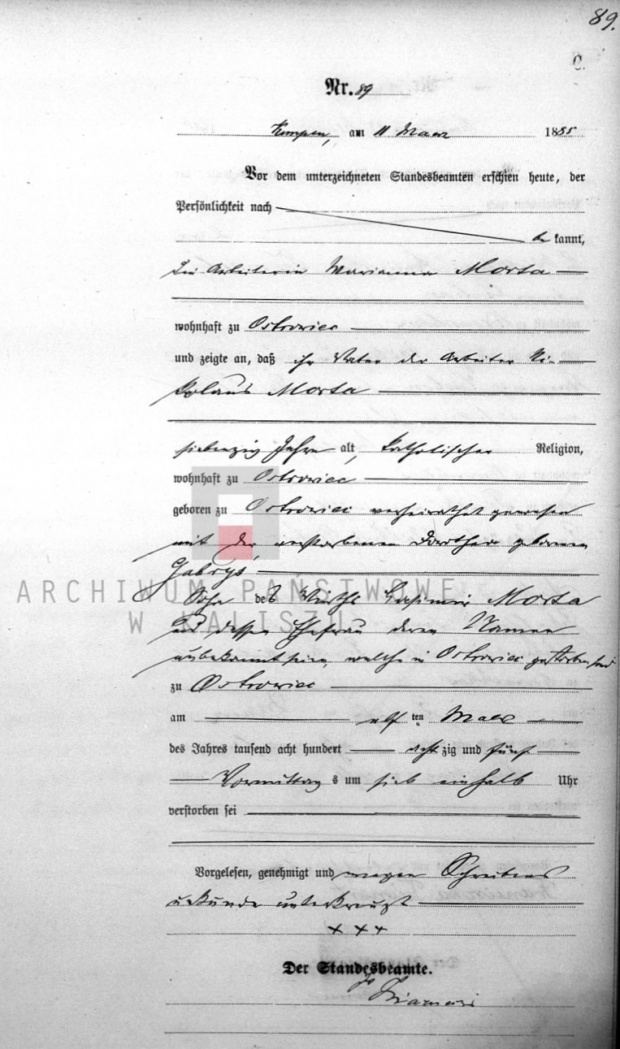 89.
C.
Nr. 89
Kempen, am 11 Maerz 1885
Vor dem unterzeichneten Standesbeamten erschien heute, der
Persönlichkeit nach
be kannt,
die Arbeiterin Marianna Morta
wohnhaft zu Ostrowiec
und zeigte an, daß ihr Vater der Arbeiter Ni-
kolaus Morta
siebenzig Jahre alt, katholischer Religion,
wohnhaft zu Ostrowiec
geboren zu Ostrowiec verheirathet gewesen
mit der verstorbenen Dorothea geborenen
Gabrys
ARCHIWUM PAŃSTWOWE
Sohn des Wirths Casimir Morta
W KALISZU
und dessen Ehefrau deren Namen
unbekannt sein, welche in Ostrowiec gestorben sind
zu Ostrowiec
am elf ten Maerz
des Jahres tausend acht hundert acht zig und fünf
Vormittag s um sieb einhalb Uhr
verstorben sei
Vorgelesen, genehmigt und wegen Schreibens
unkunde unterkreuzt
+ + +
Der Standesbeamte.